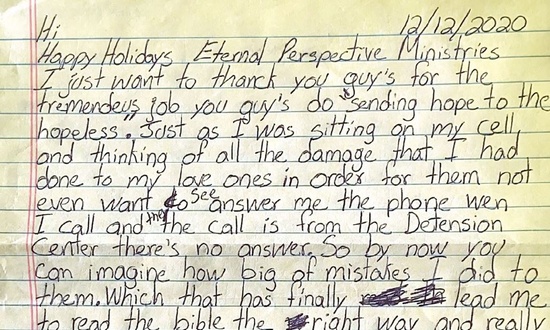 Hi 12/12/2020
Happy Holidays Eternal Perspective Ministries
I just want to thanck you guy's for the
tremendeus job you guy's do sending hope to the
hopeless. Just as I was sitting on my cell,
and thinking of all the damage that I had
done to my love ones in order for them not
even want to see answer me the phone wen
I call and the the call is from the Detension
Center there's no answer. So by now you
can imagine how big of mistakes I did to
them. Which that has finally lead me
to read the bible the right way and really